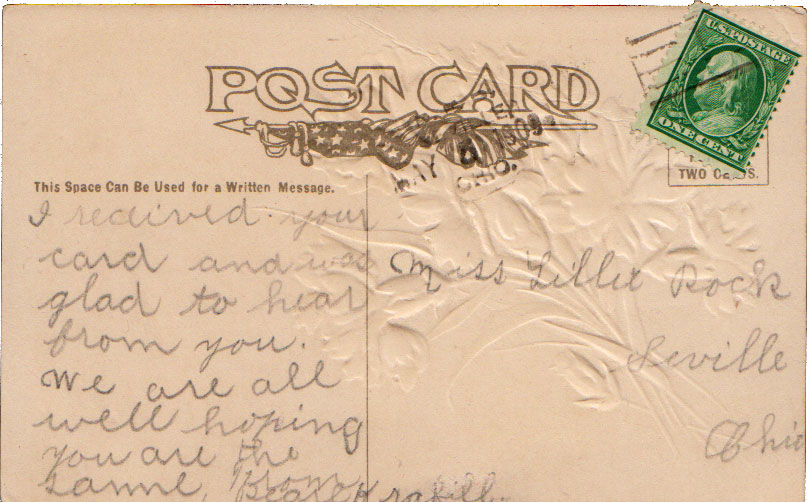 POST CARD
U.S. POSTAGE
ONE CENT
MAY 6 1909
OHIO.
TWO C S.
This Space Can Be Used for a Written Message.
I recieved your
card and was
glad to hear
from you.
We are all
well hoping
you are the
same, From
Miss Lillie Rock
Seville
Ohio